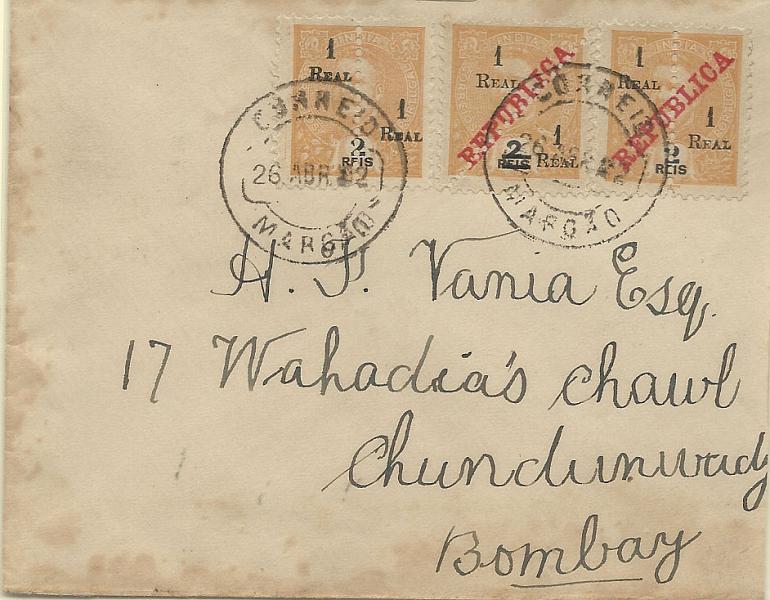 INDIA INDIA INDIA
1 REAL 1 REAL 1 REAL
1 REAL 1 REAL 1 REAL
REPUBLICA REPUBLICA
2 REIS 2 REIS 2 REIS
CORREIO CORREIO
26 ABR
MARGÃO MARGÃO
H. P. Vania Esq.
17 Wahadia's Chawl
Chundunwady
Bombay